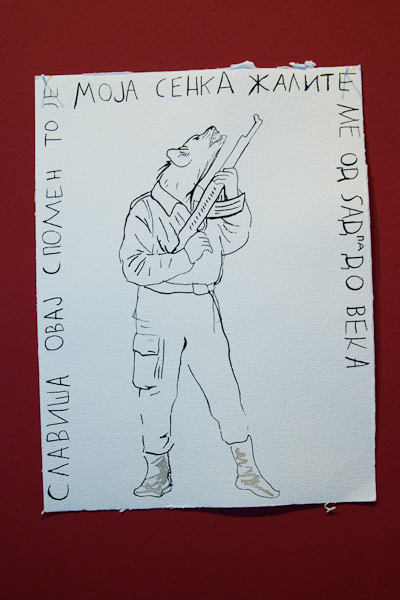 СЛАВИША ОВАЈ СПОМЕН ТО ЈЕ
МОЈА СЕНКА ЖАЛИТЕ
МЕ ОД SАД ПА ДО ВЕКА